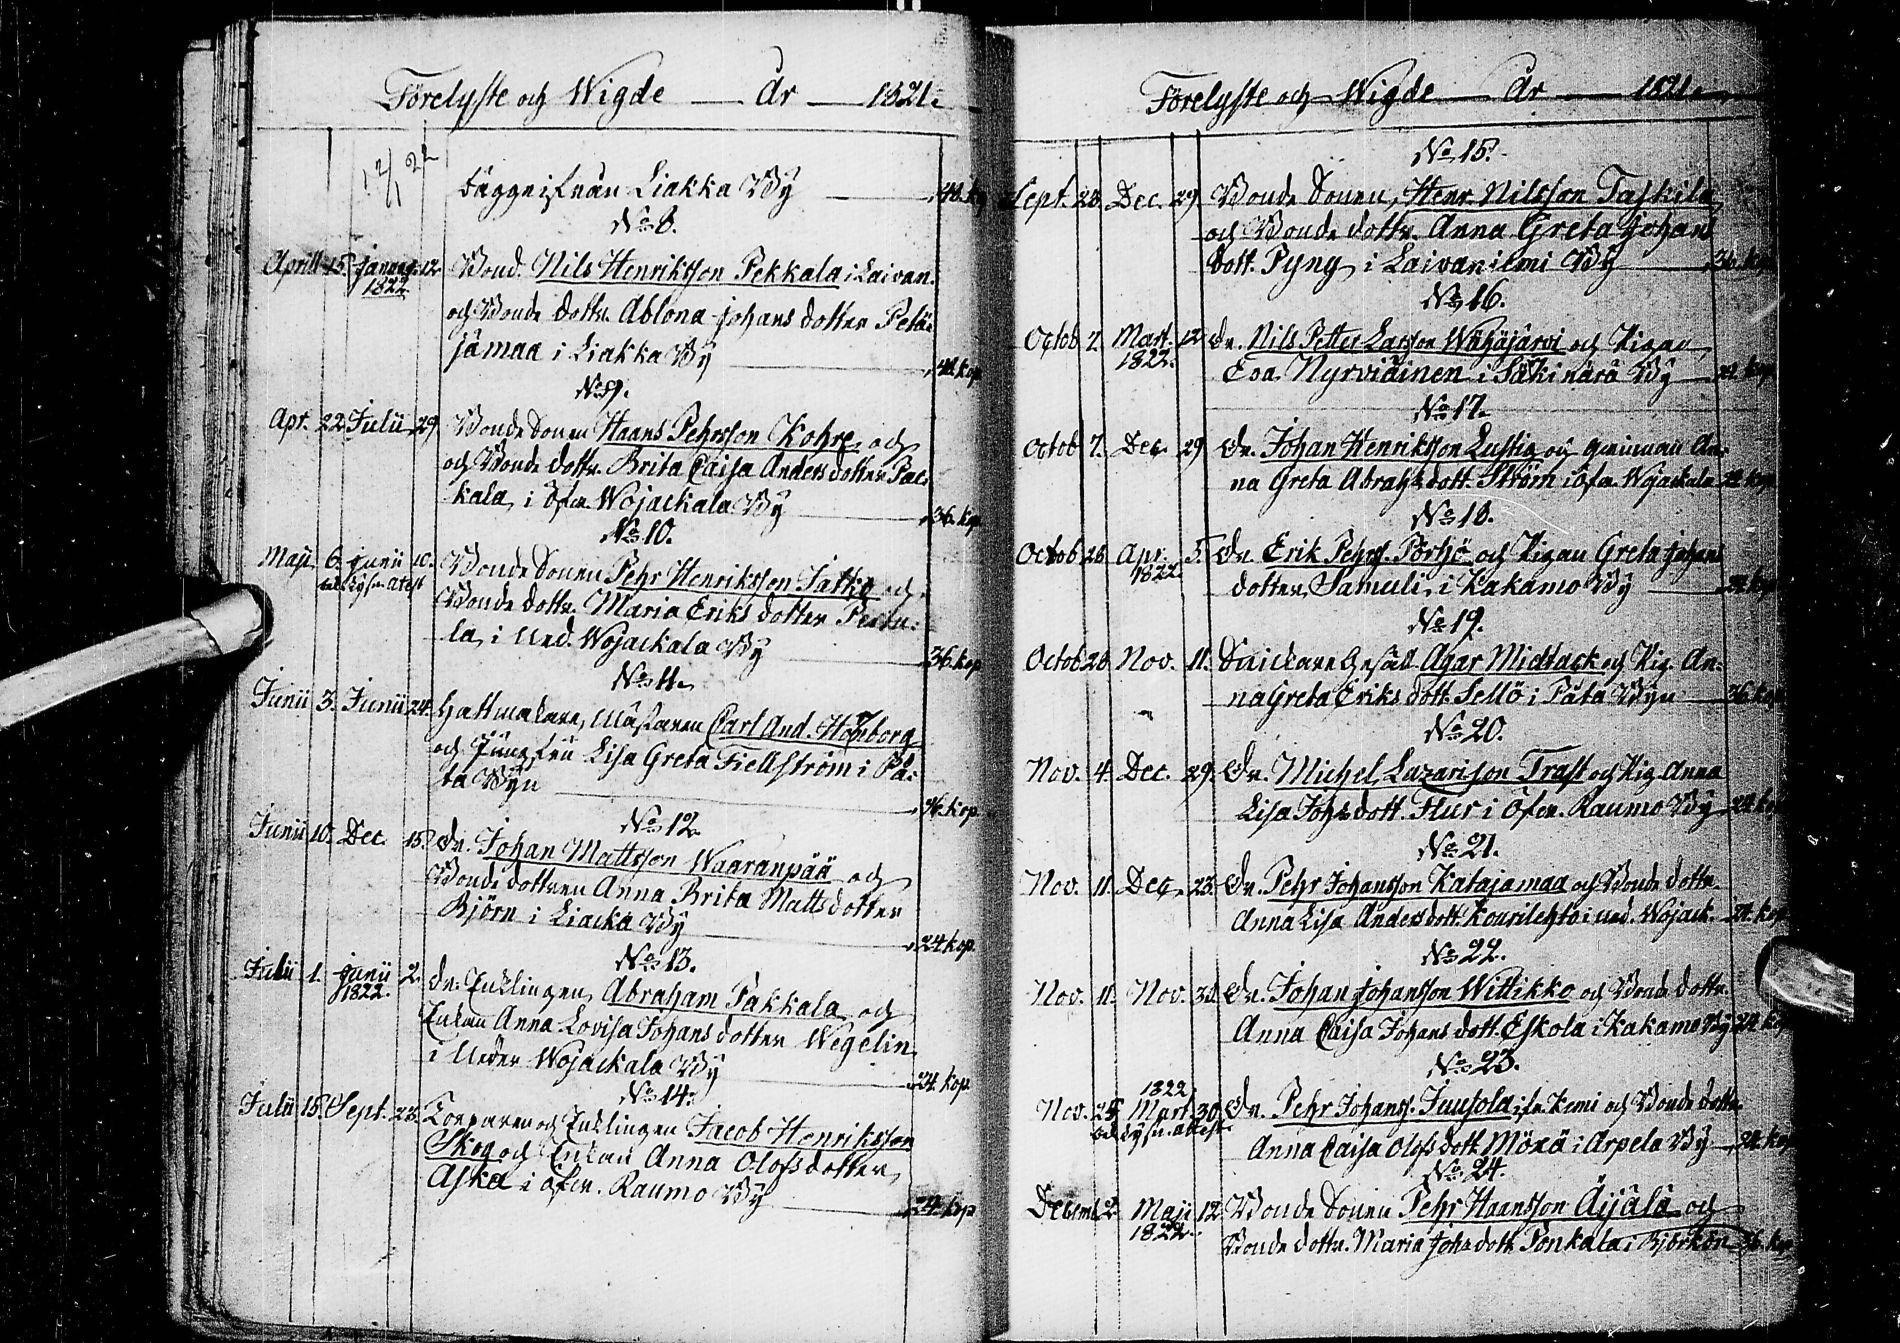 Förelyste och Wigde — År — 1821.
12/1 22
Liakka By — 48. kop
No 8.
Aprill 15. Januar. 12. Bond. Nils Henriksson Pekkala i Laivan:
1822
och Bonde dottr. Ablona Johans dotter Petä:
jämaa i Liakka By — 48. kop
No 9.
Apr. 22. Julii 29. Bonde Sonen Hans Pehrsson Kohre och
och Bonde dottr. Brita Caisa Anders dotter Pac:
kala, i Öfer Wojackala By — 36. kop
No 10.
Maji 6. Junii 10. Bonde Sonen Pehr Henriksson Jatko och
lysn. atest
Bonde dottr. Maria Eriks dotter Pertu:
la, i Ned. Wojackala By — 36. kop
No 11.
Junii 3. Junii 24. Hattmakare, Mästaren Carl And. Homborg
och Jungfru Lisa Greta Fiellström i Pä:
ta Byn — 96. kop.
No 12.
Junii 10. Dec. 15. Dr. Johan Mattsson Waaranpää och
Bonde dottren Anna Brita Matts dotter
Björn i Liacka By — 24 kop.
No 13.
Julii 1. Junii 2. Dr. Enklingen, Abraham Pakkala och
1822.
Enkan Anna Lovisa Johans dotter Wegelin
i Neder Wojackala By — 24. kop
No 14.
Julii 15. Sept. 23. Torparen och Enklingen Jacob Henriksson
Skog och Enkan Anna Olofs dotter
Aska i Öfer. Raumo By — 24. kop
Förelyste och Wigde — År — 1821.
No 15.
Sept. 23. Dec. 29. Bonde Sonen, Henr. Nilsson Taskila
och Bonde dottr. Anna Greta Johans
dott. Pyny i Laivaniemi By — 36. kop
No 16.
Octob 7. Mart. 12. Dr. Nils Petter Larsson Wähäjärvi och Pigan
1822.
Eva Nyrviäinen i Säkinärä By — 24. kop
No 17.
Octob 7. Dec. 29. Dr. Johan Henriksson Lustig och qvinnan An:
na Greta Abrahs dott. Ström i Öfer Wojackala 24 kop
No 18.
Octob 28. Apr. 5. Dr. Erik Pehrs. Pörhö och Pigan Greta Johans
1822
dotter, Samuli, i Kakamo By — 24. kop
No 19.
Octob 28. Nov. 11. Snickare Gesäll Agar Midtack och Pig. An:
na Greta Eriks dott. Sellö i Päta Byn — 36 kop
No 20.
Nov. 4. Dec. 29. Dr. Michel Lazarisson Trast och Pig. Anna
Lisa Johs dott. Stur i Öfer. Raumo By — 24. kop
No 21.
Nov. 11. Dec. 23. Dr. Pehr Johansson Katajamaa och Bonde dottr.
Anna Lisa Anders dott. Kourilehto i ned. Wojack. 24. kop
No 22.
Nov. 11. Nov. 30. Dr. Johan Johansson Wittikko och Bonde dottr.
Anna Caisa Johans dott. Eskola i Kakamo By 24. kop
No 23.
1822
Nov. 25. Mart. 30. Dr. Pehr Johanss. Juusola, fr. Kemi och Bonde dottr.
lysn. attest
Anna Caisa Olofs dott. Mörä i Arpela By — 24. kop
No 24.
Decemb. 2. Maji 12. Bonde Sonen Pehr Hansson Äijälä och
1822.
Bonde dottr. Maria Johs dott. Ponkala, i Björkön 36. kop